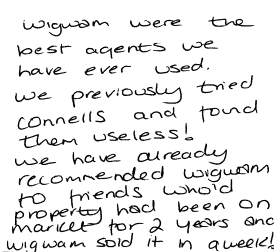 wigwam were the
best agents we
have ever used.
we previously tried
connells and found
them useless!
we have already
recommended wigwam
to friends who'd
property had been on
market for 2 years and
wigwam sold it in a week!